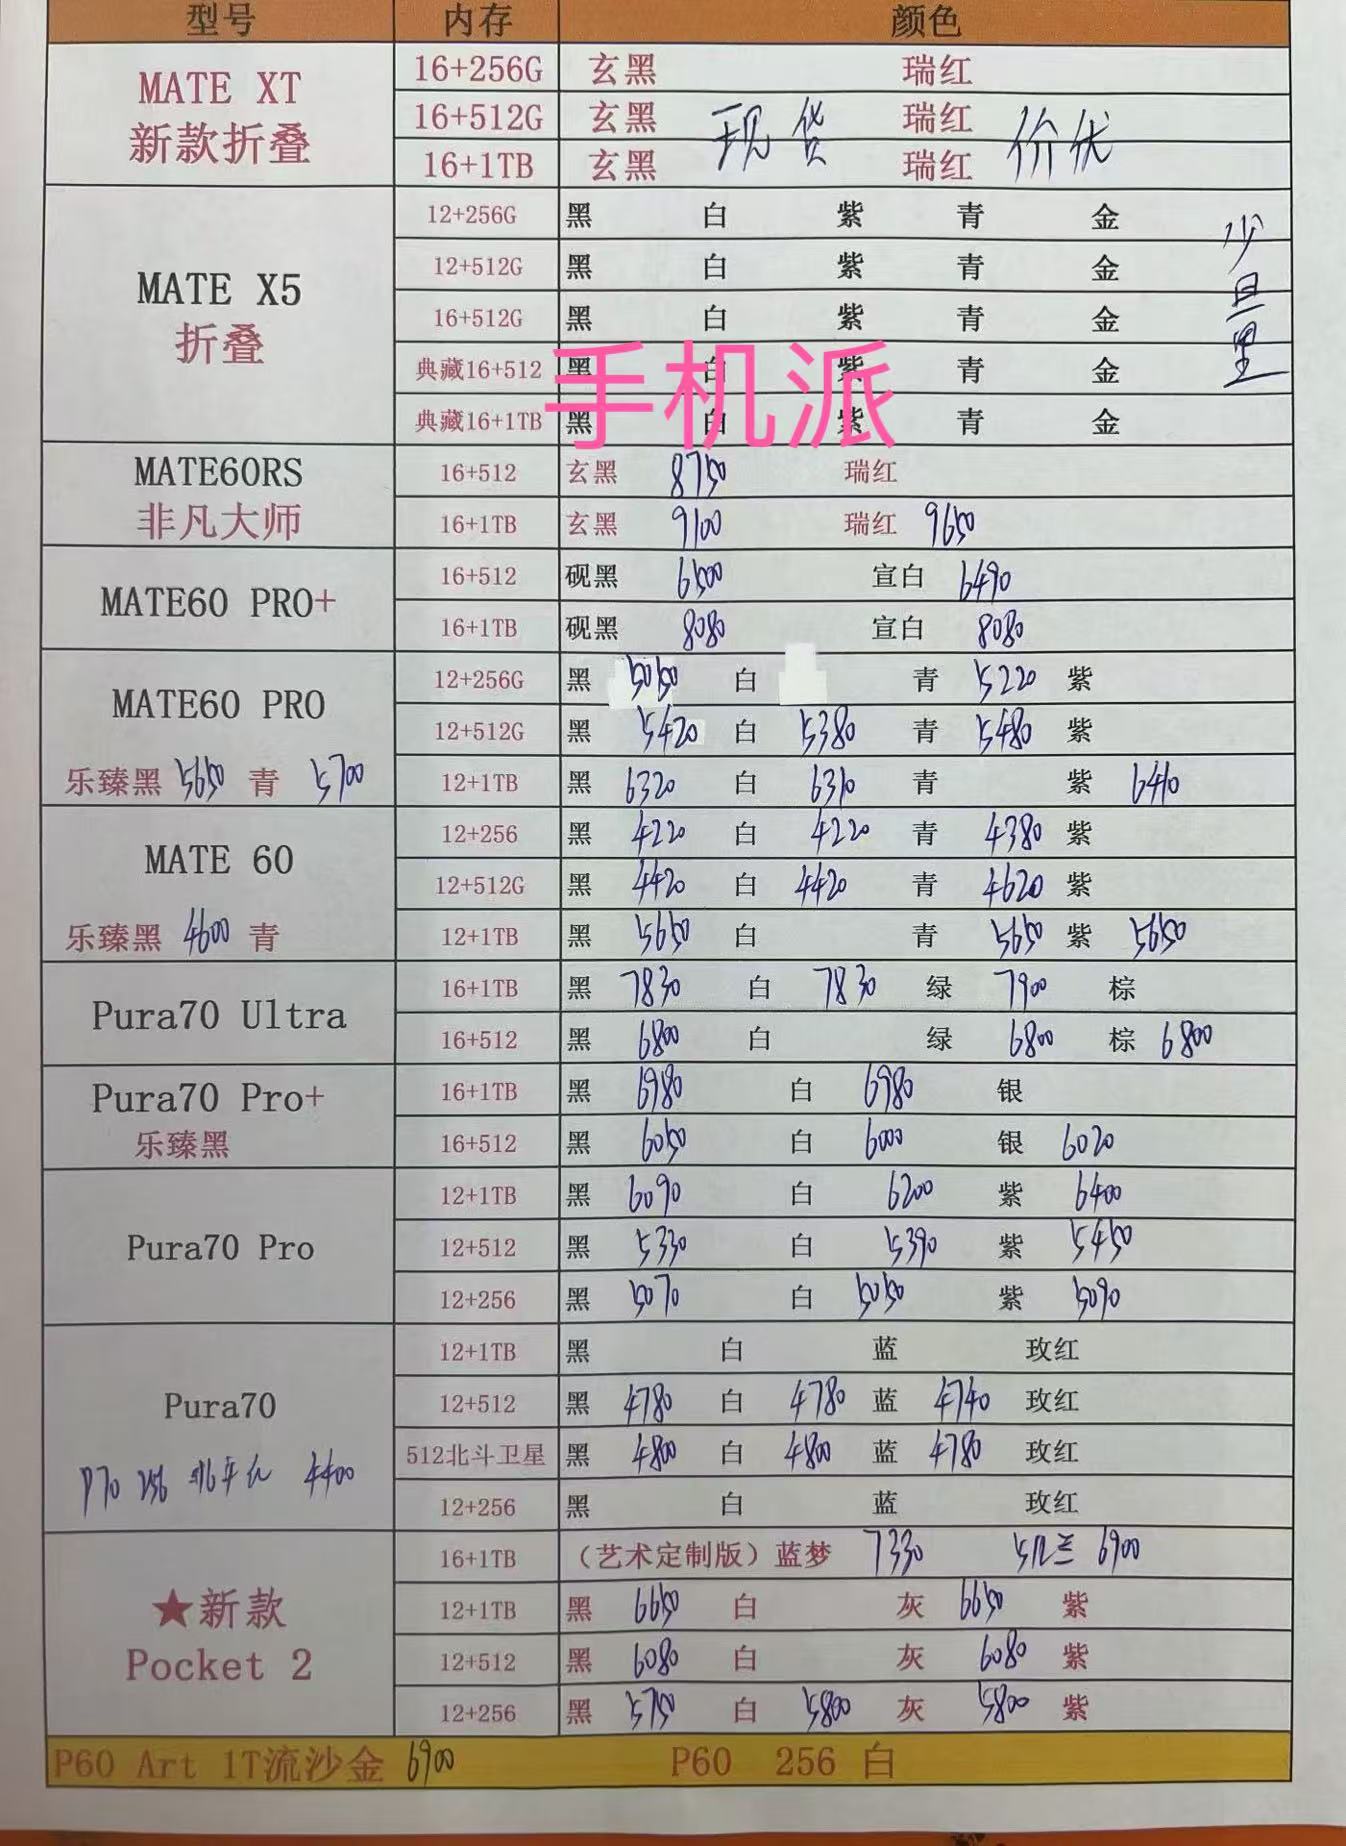 型号 内存 颜色
MATE XT 新款折叠
16+256G 玄黑 瑞红
16+512G 玄黑 现货 瑞红 价优
16+1TB 玄黑 瑞红
MATE X5 折叠
12+256G 黑 白 紫 青 金
12+512G 黑 白 紫 青 金
16+512G 黑 白 紫 青 金
典藏16+512 黑 白 紫 青 金
典藏16+1TB 黑 白 紫 青 金
少量
手机派
MATE60RS 非凡大师
16+512 玄黑 8750 瑞红
16+1TB 玄黑 9100 瑞红 9650
MATE60 PRO+
16+512 砚黑 6500 宣白 6490
16+1TB 砚黑 8080 宣白 8080
MATE60 PRO
乐臻黑 5650 青 5700
12+256G 黑 5050 白 青 5220 紫
12+512G 黑 5420 白 5380 青 5480 紫
12+1TB 黑 6320 白 6310 青 紫 6410
MATE 60
乐臻黑 4600 青
12+256 黑 4220 白 4220 青 4380 紫
12+512G 黑 4420 白 4420 青 4620 紫
12+1TB 黑 5650 白 青 5650 紫 5650
Pura70 Ultra
16+1TB 黑 7830 白 7830 绿 7900 棕
16+512 黑 6800 白 绿 6800 棕 6800
Pura70 Pro+
乐臻黑
16+1TB 黑 6980 白 6980 银
16+512 黑 6050 白 6000 银 6020
Pura70 Pro
12+1TB 黑 6090 白 6200 紫 6400
12+512 黑 5330 白 5390 紫 5450
12+256 黑 5070 白 5050 紫 5090
Pura70
P70 256 北斗 4400
12+1TB 黑 白 蓝 玫红
12+512 黑 4780 白 4780 蓝 4740 玫红
512北斗卫星 黑 4800 白 4800 蓝 4780 玫红
12+256 黑 白 蓝 玫红
★新款 Pocket 2
16+1TB （艺术定制版）蓝梦 7330 6900
12+1TB 黑 6650 白 灰 6650 紫
12+512 黑 6080 白 灰 6080 紫
12+256 黑 5750 白 5800 灰 5800 紫
P60 Art 1T流沙金 6900 P60 256 白